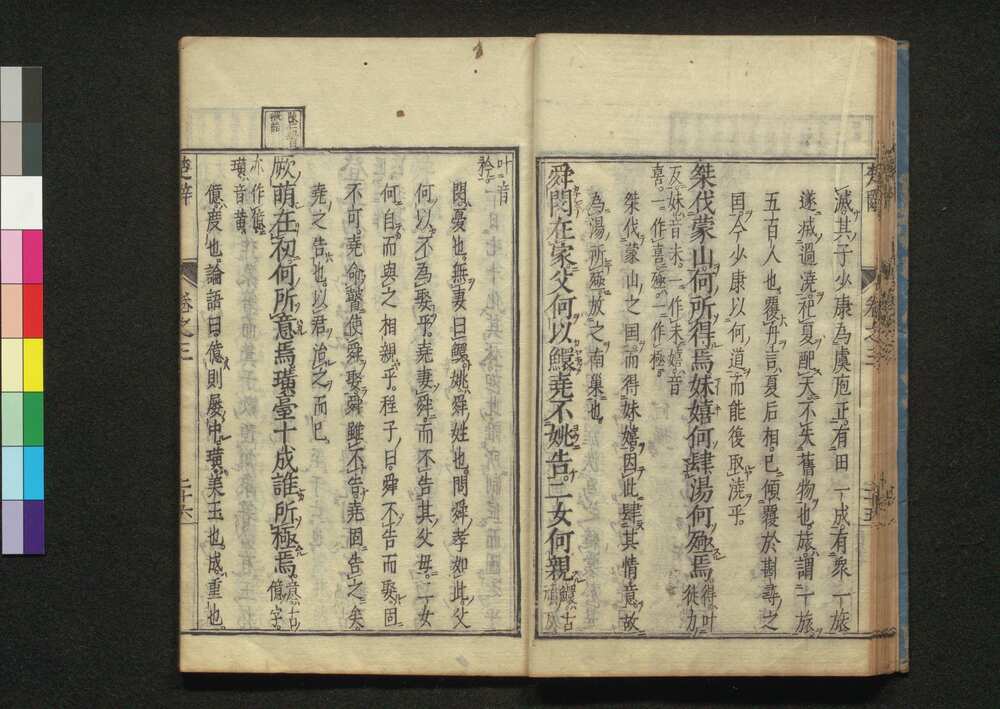 滅其子少康為虞庖正有田一成有衆一旅
遂滅過澆祀夏配天不失舊物也旅謂一旅
五百人也覆舟言夏后相已傾覆於斟尋之
国今少康以何道而能後取澆乎
桀伐蒙山何所得焉妹嬉何肆湯何殛焉得叶徒力
反妹音末一作末嬉音
喜一作喜殛一作極
桀伐蒙山之国而得妹嬉因此肆其情意故
為湯所殛放之南巢也
舜閔在家父何以鱞堯不姚告二女何親鱞古
叶音
矜
閔憂也無妻曰鱞姚舜姓也問舜孝如此父
何以不為娶乎堯妻舜而不告其父母二女
何自而與之相親乎程子曰舜不告而娶固
不可堯命瞽使舜娶舜雖不告堯固告之矣
堯之告也以君治之而已
厥萌在初何所意焉璜臺十成誰所極焉意古億字
亦作億
璜音黄
億度也論語曰億則屡中璜美玉也成重也
楚辭
卷之三
二十六